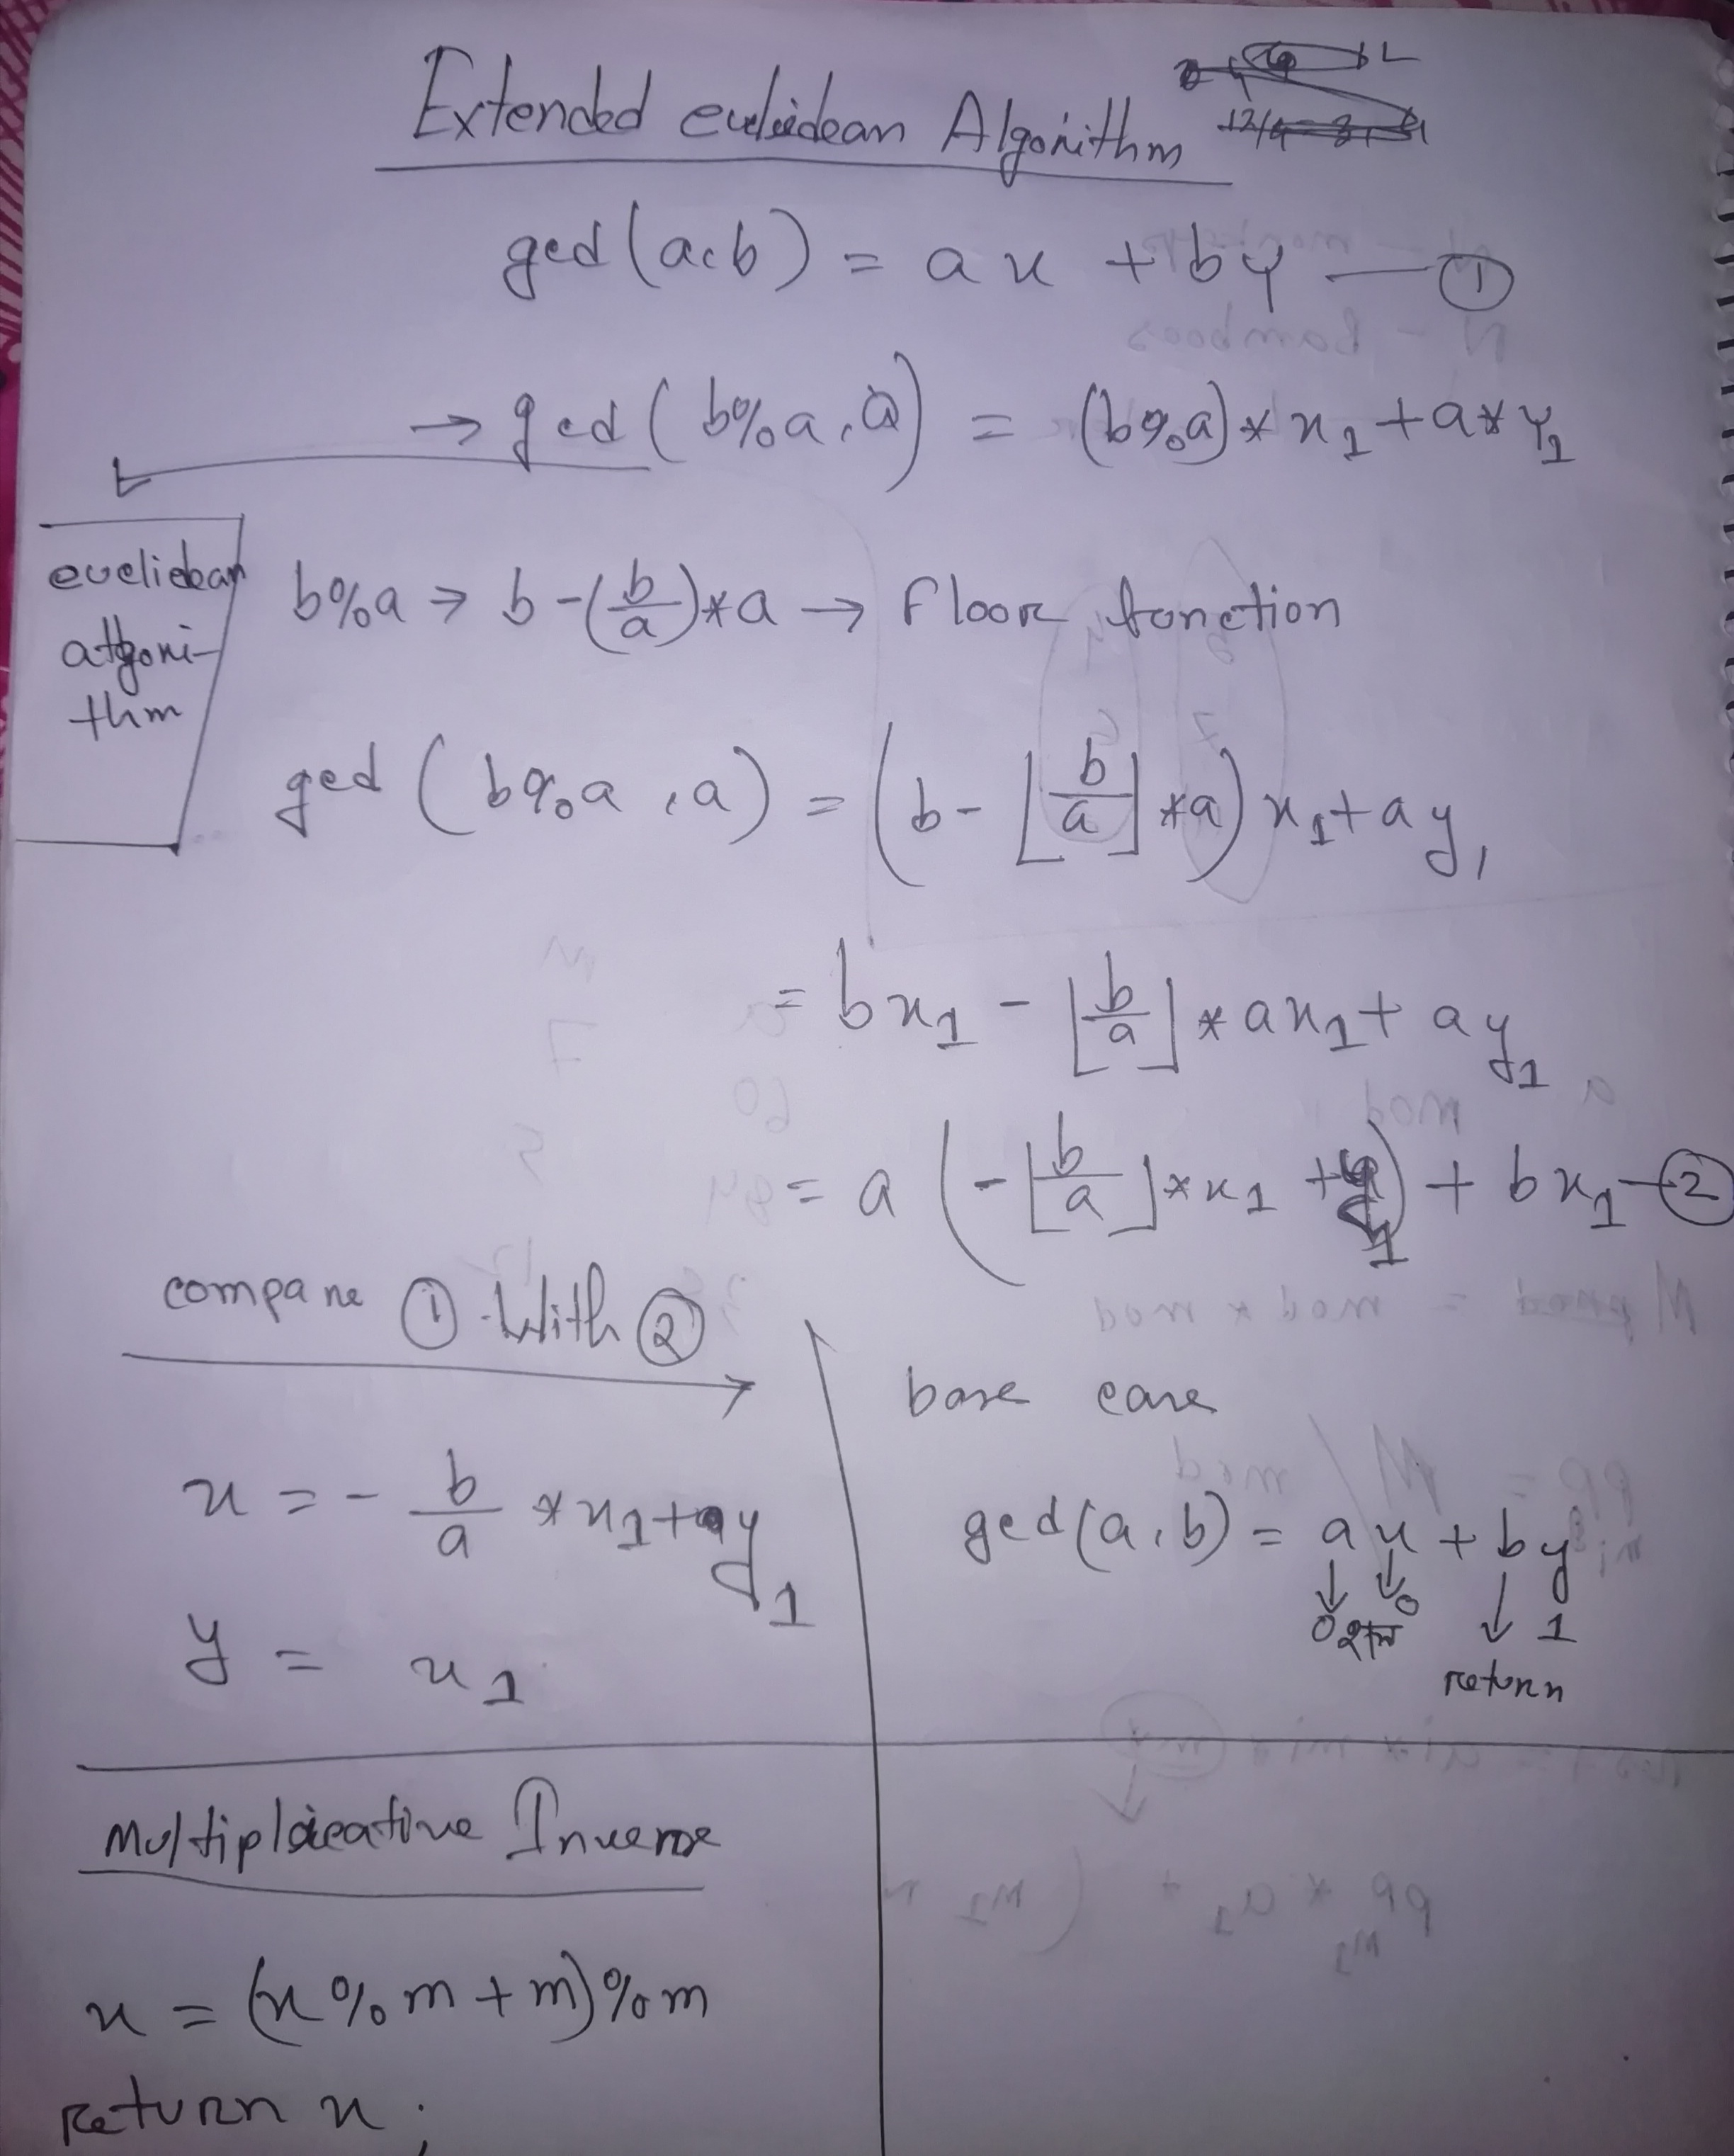 Extended eucliidean Algorithm
gcd(a,b) = ax + by — ①
→ gcd(b%a, a) = (b%a)*x₁ + a*y₁
euclidean
algori-
thm
b%a → b-(b/a)*a → floor function
gcd(b%a, a) = (b - ⌊b/a⌋*a)x₁ + ay₁
= bx₁ - ⌊b/a⌋*ax₁ + ay₁
= a(-⌊b/a⌋*x₁ + y₁) + bx₁ — ②
compare ① with ②
x = - b/a *x₁ + y₁
y = x₁
base case
gcd(a,b) = ax + by
↓ ↓ ↓
0 0 1
return
Multiplicative Inverse
x = (x%m + m)%m
return x;